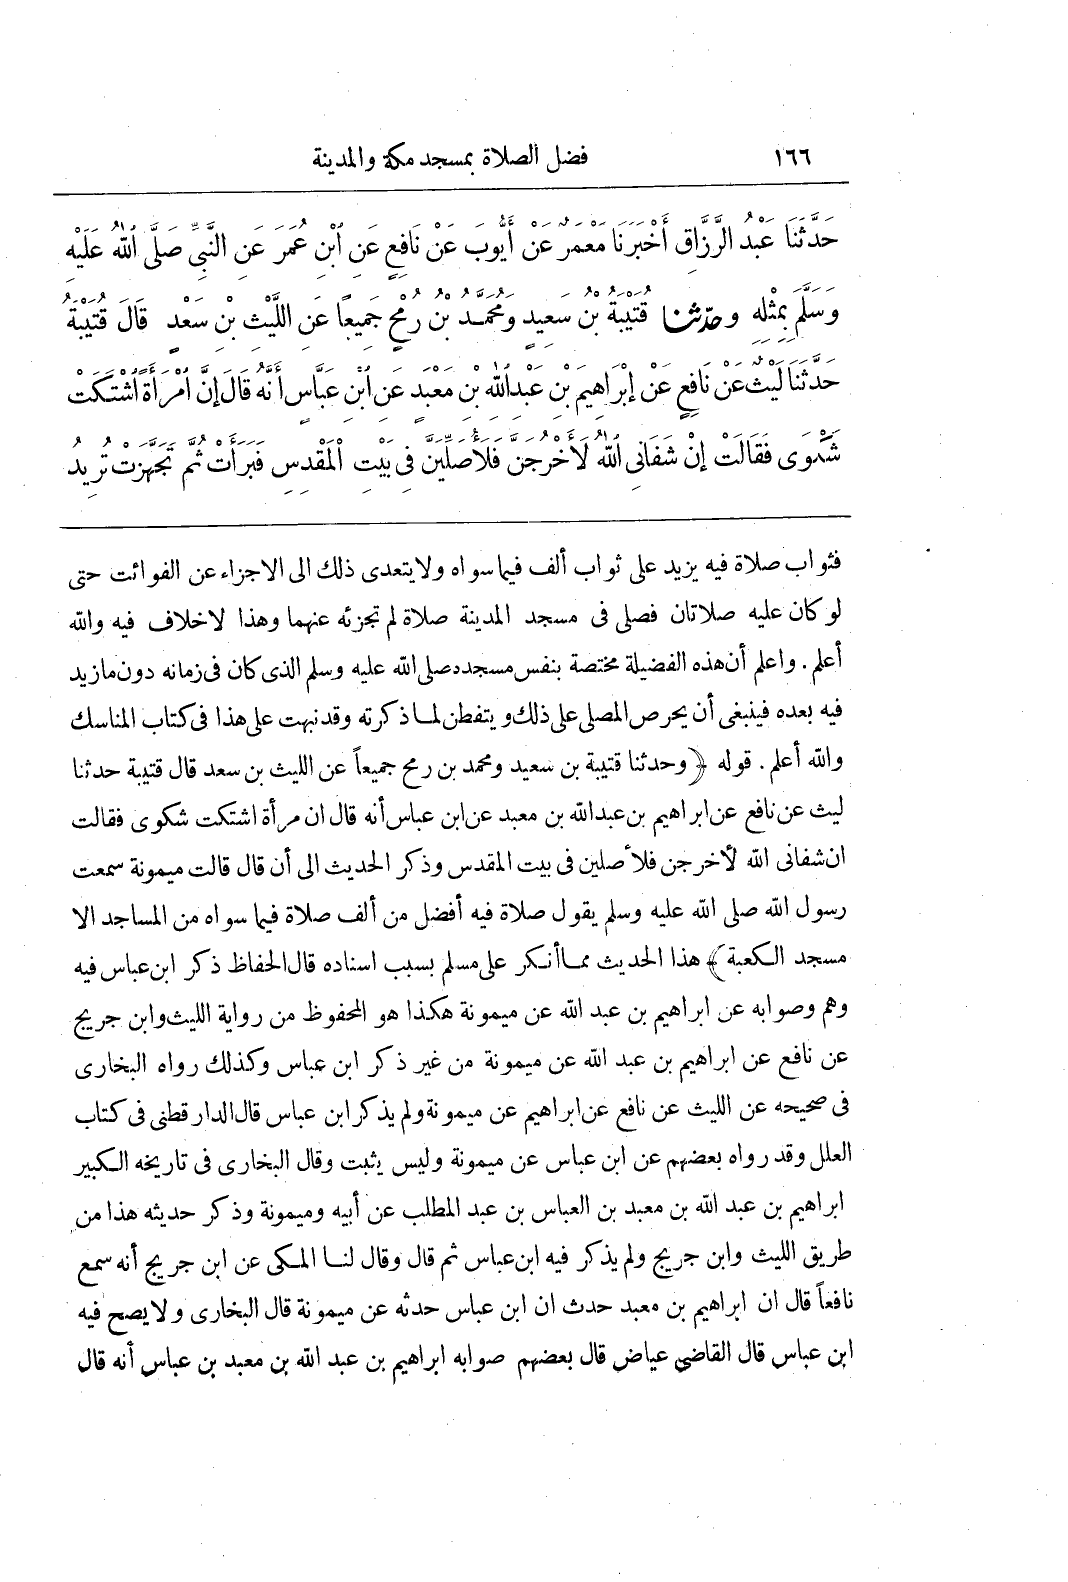 ١٦٦ فضل الصلاة بمسجد مكة والمدينة
حَدَّثَنَا عَبْدُ الرَّزَّاقِ أَخْبَرَنَا مَعْمَرٌ عَنْ أَيُّوبَ عَنْ نَافِعٍ عَنِ ابْنِ عُمَرَ عَنِ النَّبِيِّ صَلَّى اللّٰهُ عَلَيْهِ
وَسَلَّمَ بِمِثْلِهِ وحدّثنا قُتَيْبَةُ بْنُ سَعِيدٍ وَمُحَمَّدُ بْنُ رُمْحٍ جَمِيعًا عَنِ اللَّيْثِ بْنِ سَعْدٍ قَالَ قُتَيْبَةُ
حَدَّثَنَا لَيْثٌ عَنْ نَافِعٍ عَنْ إِبْرَاهِيمَ بْنِ عَبْدِ اللّٰهِ بْنِ مَعْبَدٍ عَنِ ابْنِ عَبَّاسٍ أَنَّهُ قَالَ إِنَّ امْرَأَةً اشْتَكَتْ
شَكْوَى فَقَالَتْ إِنْ شَفَانِى اللّٰهُ لَأَخْرُجَنَّ فَلَأُصَلِّيَنَّ فِى بَيْتِ الْمَقْدِسِ فَبَرَأَتْ ثُمَّ تَجَهَّزَتْ تُرِيدُ
فثواب صلاة فيه يزيد على ثواب ألف فيما سواه ولا يتعدى ذلك الى الاجزاء عن الفوائت حتى
لو كان عليه صلاتان فصلى فى مسجد المدينة صلاة لم تجزئه عنهما وهذا لا خلاف فيه والله
أعلم. واعلم أن هذه الفضيلة مختصة بنفس مسجده صلى الله عليه وسلم الذى كان فى زمانه دون ما زيد
فيه بعده فينبغى أن يحرص المصلى على ذلك ويتفطن لما ذكرته وقد نبهت على هذا فى كتاب المناسك
والله أعلم. قوله ﴿وحدثنا قتيبة بن سعيد ومحمد بن رمح جميعاً عن الليث بن سعد قال قتيبة حدثنا
ليث عن نافع عن ابراهيم بن عبد الله بن معبد عن ابن عباس أنه قال ان مرأة اشتكت شكوى فقالت
ان شفانى الله لأخرجن فلأصلين فى بيت المقدس وذكر الحديث الى أن قال قالت ميمونة سمعت
رسول الله صلى الله عليه وسلم يقول صلاة فيه أفضل من ألف صلاة فيما سواه من المساجد الا
مسجد الكعبة﴾ هذا الحديث مما أنكر على مسلم بسبب اسناده قال الحفاظ ذكر ابن عباس فيه
وهم وصوابه عن ابراهيم بن عبد الله عن ميمونة هكذا هو المحفوظ من رواية الليث وابن جريج
عن نافع عن ابراهيم بن عبد الله عن ميمونة من غير ذكر ابن عباس وكذلك رواه البخارى
فى صحيحه عن الليث عن نافع عن ابراهيم عن ميمونة ولم يذكر ابن عباس قال الدارقطنى فى كتاب
العلل وقد رواه بعضهم عن ابن عباس عن ميمونة وليس يثبت وقال البخارى فى تاريخه الكبير
ابراهيم بن عبد الله بن معبد بن العباس بن عبد المطلب عن أبيه وميمونة وذكر حديثه هذا من
طريق الليث وابن جريج ولم يذكر فيه ابن عباس ثم قال وقال لنا المكى عن ابن جريج أنه سمع
نافعاً قال ان ابراهيم بن معبد حدث ان ابن عباس حدثه عن ميمونة قال البخارى ولا يصح فيه
ابن عباس قال القاضى عياض قال بعضهم صوابه ابراهيم بن عبد الله بن معبد بن عباس أنه قال